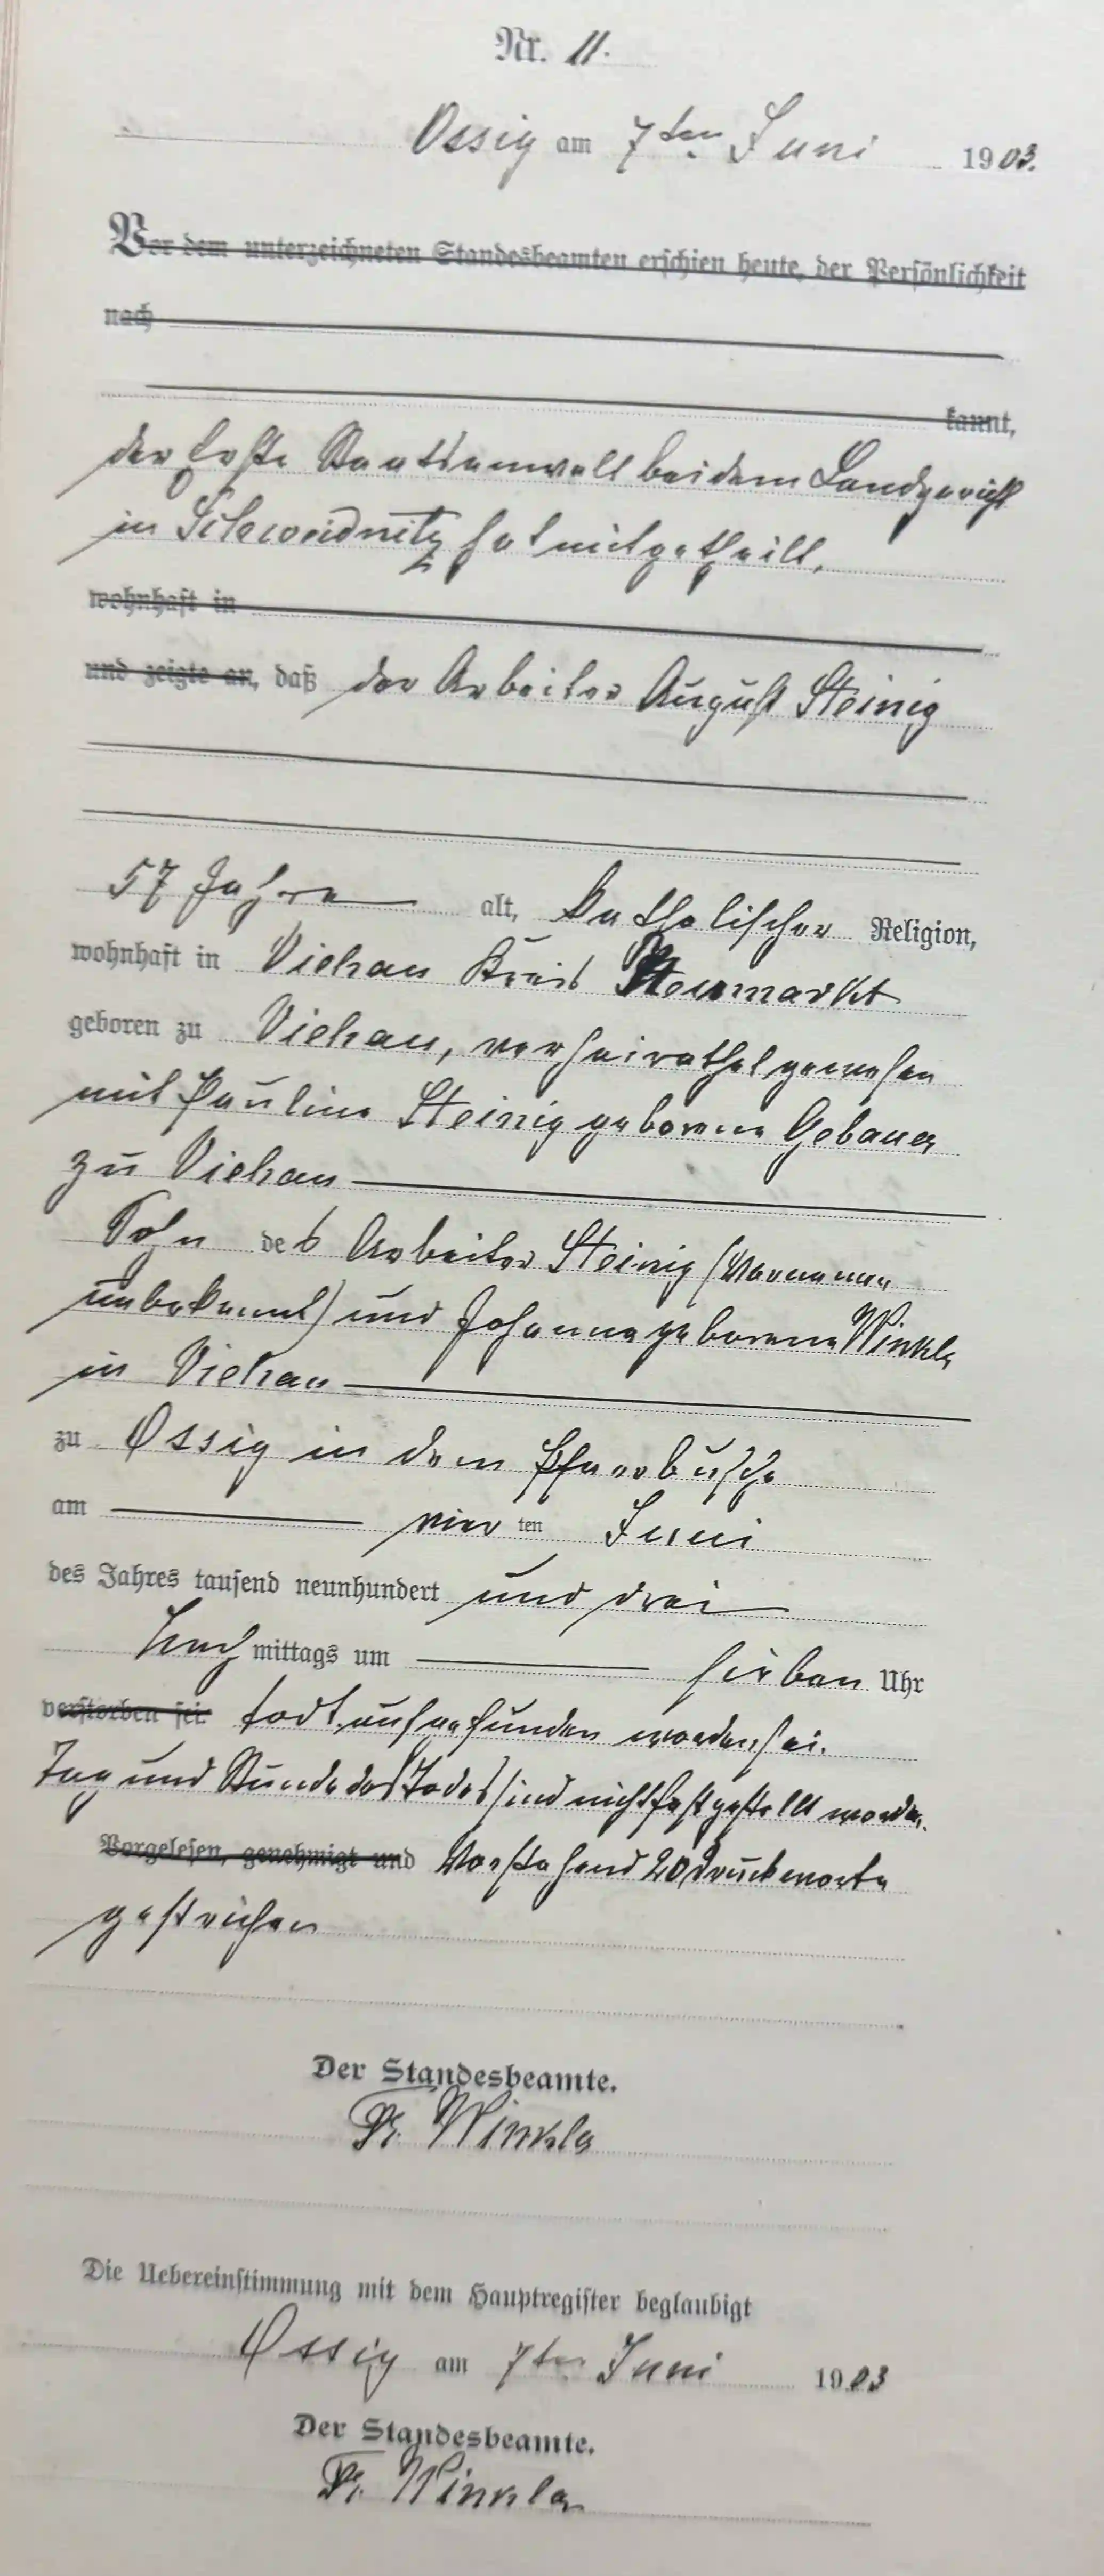 Nr. 11.
Ossig am 7ten Juni 1903.
Vor dem unterzeichneten Standesbeamten erschien heute, der Persönlichkeit
nach
kannt,
der Erste Staatsanwalt bei dem Landgericht
in Schweidnitz hat mitgetheilt,
wohnhaft in
und zeigte an, daß der Arbeiter August Steinig
57 Jahre alt, katholischer Religion,
wohnhaft in Viehau Kreis Neumarkt
geboren zu Viehau, verheirathet gewesen
mit Pauline Steinig geborene Gebauer
zu Viehau
Sohn des Arbeiter Steinig (Vorname
unbekannt) und Johanna geborene Winkler
in Viehau
zu Ossig in dem Pfarrbusche
am vier ten Juni
des Jahres tausend neunhundert und drei
Nach mittags um sieben Uhr
verstorben sei. todt aufgefunden worden sei.
Tag und Stunde des Todes sind nicht festgestellt worden.
Vorgelesen, genehmigt und Vorstehend 20 Druckworte
gestrichen
Der Standesbeamte.
Fr. Winkler
Die Uebereinstimmung mit dem Hauptregister beglaubigt
Ossig am 7ten Juni 1903
Der Standesbeamte.
Fr. Winkler